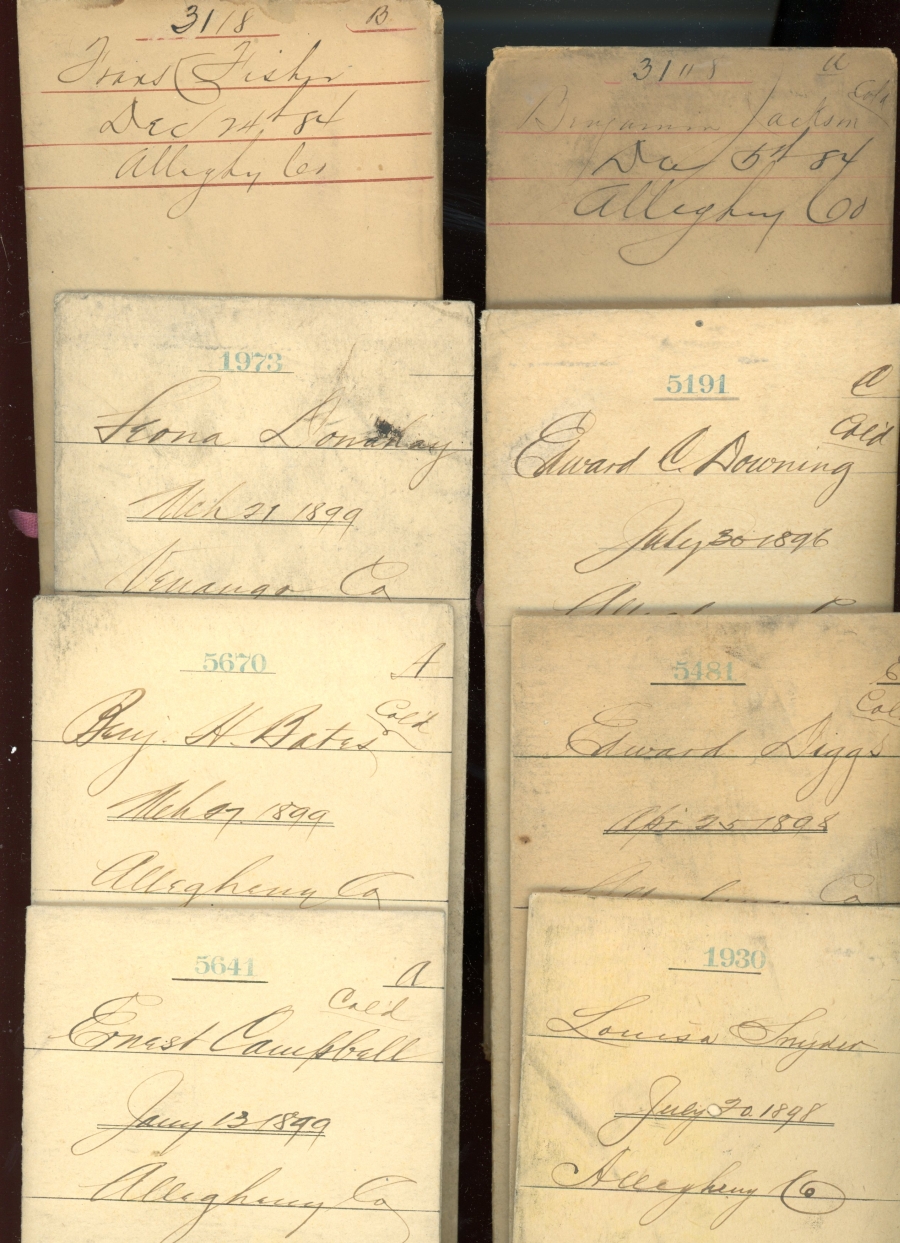 3118 B
Frans Fisher
Dec 24th 84
Alleghy Co
3118 a
Col'd
Benjamin Jackson
Dec 5th 84
Allegheny Co
1973
Leona Donahay
Mch 21 1899
Venango Co
5191 C
Col'd
Edward C. Downing
July 30 1896
5670 A
Col'd
Benj. H. Bates
Mch 27. 1899
Allegheny Co
5481
Edward Diggs
Apr 25 1898
Co
5641 a
Col'd
Ernest Campbell
Jany 13 1899
Allegheny Co
1930
Louisa Snyder
July 20. 1898
Allegheny Co